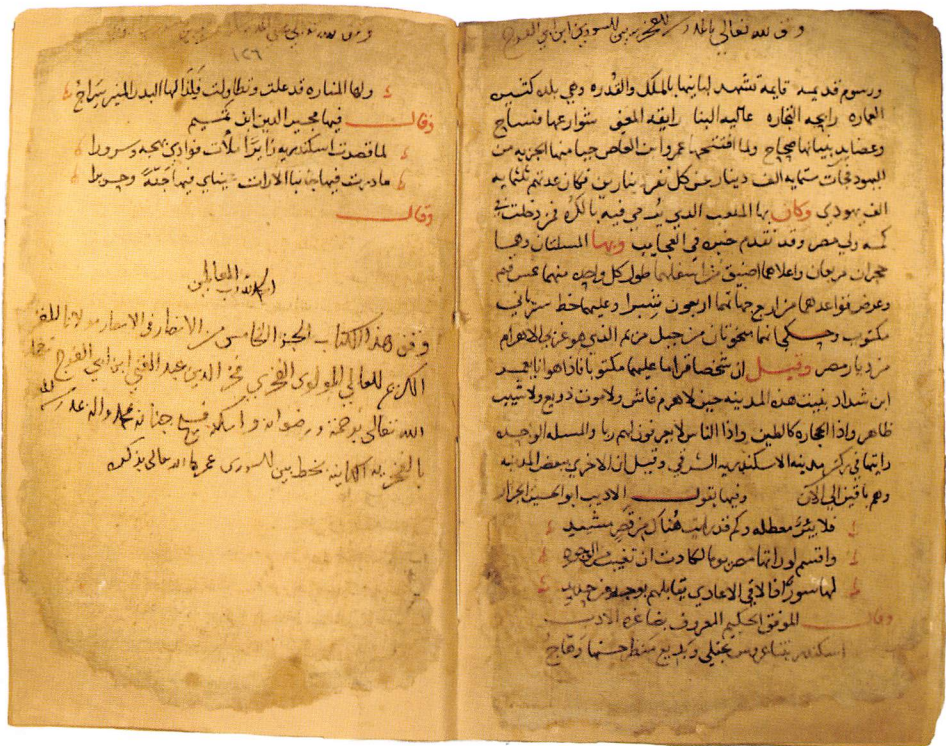 وقف لله تعالى بالمدرسة الفخرية بين السورين ابن ابي الفرج
ورسوم قديمه قايمه تشهد لبانيها بالملك والقدره وهي بلده كثيرة
العماره رايجه التجاره عاليه البنا رايقه المغنى شوارعها فساح
وعضايد بنيانها صحاح ولما افتتحها عمرو بن العاص جبا منها الجزيه من
اليهود فجات ستمايه الف دينار عن كل نفر دينارين فكان عدتهم ثلثمايه
الف يهودي وكان بها الملعب الذي يرمى فيه بالكره فمن دخلت في
كمه ولي مصر وقد تقدم خبره في العجايب وبها المسلتان وهما
حجران مربعان واعلاهما اضيق من اسفلهما طول كل واحده منهما خمس قيم
وعرض قواعدهما من اربع جهاتهما اربعون شبرا وعليهما خط سرياني
مكتوب وحكي انهما منحوتان من جبل بريم الذي هو غربي الاهرام
من ديار مصر وقيل ان شخصا قرا ما عليهما مكتوبا فاذا هو انا يعمر
ابن شداد بنيت هذه المدينه حين لا هرم فاش ولا موت ذريع ولا شيب
ظاهر واذا الحجاره كالطين واذا الناس لا يعرفون لهم ربا والمسله الواحده
رايتها في ركن مدينه الاسكندريه الشرقي وقيل ان الاخرى ببعض المدينه
وهم باقين الى الان وفيها يقول الاديب ابو الحسين الجزار
فلا بئر معطله وكم قد رايت هناك من قصر مشيد
واقسم لو راتها مصر يوما لكادت ان تغيب من الوجود
لها سور اذا لاقى الاعادي يقابلهم بوجه من حديد
وقال الموفق الحكيم المعروف بضاغره الادب
اسكندريتنا عروس تجتلى وبديع منظر حسنها وهاج
١٢٦
ولها المناره قد علت وتطاولت فلذا لها البدر المنير سراج
وقال فيها مجير الدين ابن تميم
لما قصدت اسكندريه زايرا ملأت فوادي بهجه وسرورا
ما درت فيها جانبا الا رات عيناي فيها جنة وحريرا
وقال
الحمد لله رب العالمين
وقف هذا الكتاب الجزء الخامس من الانظار في الاسفار مولانا المقر
الكريم العالي المولوي الفخري فخر الدين عبد الغني ابن ابي الفرج تغمده
الله تعالى برحمته ورضوانه واسكنه فسيح جنانه بمحمد واله على
بالفخريه الكاينه بخط بين السورين عمرها الله تعالى بذكره